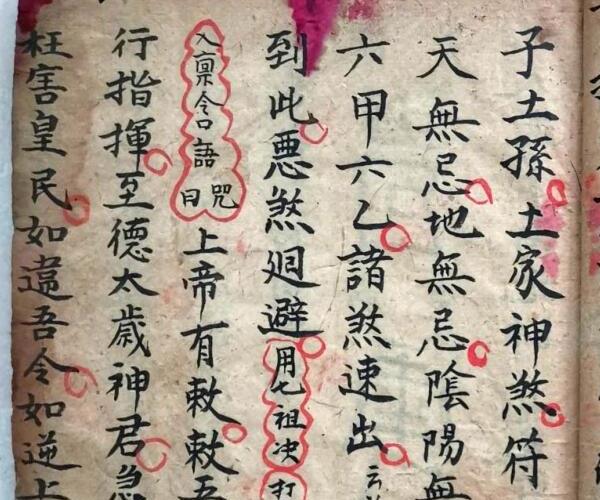 子土孫土家神煞符
天無忌地無忌陰陽無
六甲六乙諸煞速出
到此惡煞廻避用七祖决打
入稟令語咒曰上帝有敕敕吾
行指揮至德太歲神君急
枉害皇民如違吾令如逆上